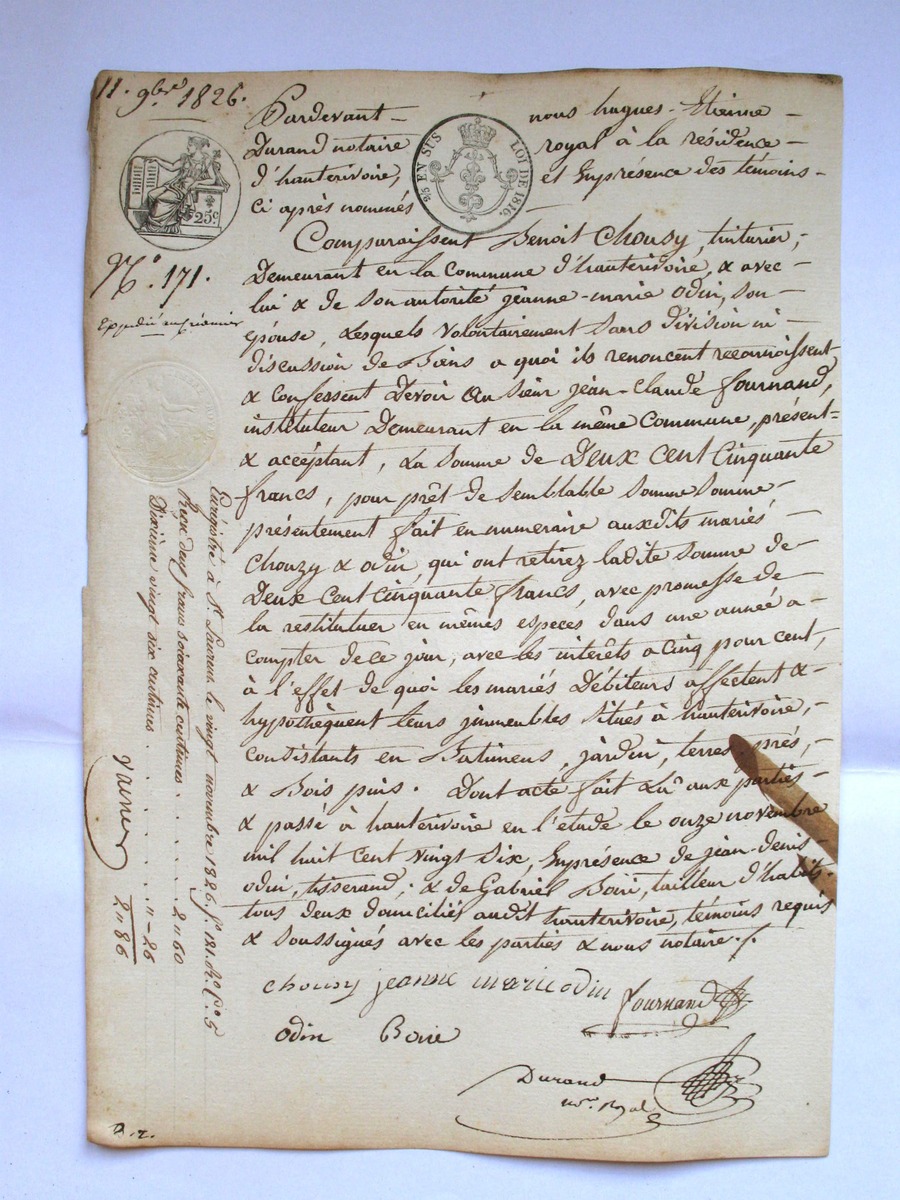 11. 9bre 1826.
Pardevant - nous hugues - Etienne -
Durand notaire royal à la residence -
d'hauterivoire, et Enprésence des témoins -
Ci après nommés
25c
2/5 EN SUS LOI DE 1816.
Comparaissent Benoit Chouzy, tinturier, -
N.o 171.
Demeurant en la Commune d'hauterivoire, & avec -
lui & de son autorité jeanne-marie odin, son -
Expédié enpremier
épouse, Lesquels volontairement sans division ni -
discussion de Biens a quoi ils renoncent reconnoissent -
& confessent Devoir au sieur jean-Claude fournand,
instituteur Demeurant en la même Commune, présent -
& accéptant, La somme de Deux cent cinquante
francs, pour prêt de semblable somme somme -
présentement fait en numeraire auxdits mariés -
Chouzy & odin, qui ont retirez ladite somme de -
Deux Cent Cinquante francs, avec promesse de -
la restituer en mêmes especes dans une année a -
compter de ce jour, avec les intérêts a cinq pour cent,
à l'effet de quoi les mariés Débiteurs affectent & -
hypothèquent leurs jmmeubles situés à hauterivoire, -
Consistants en Batimens, jardin, terres, prés, -
& Bois pins. Dont acte fait Lû aux parties -
& passé à hauterivoire en l'etude le onze novembre
mil huit cent vingt six, Enprésence de jean-denis
odin, tisserand; & de Gabriel Boiri, tailleur d'habits -
tous deux domiciliés audit hauterivoire, témoins requis
& soussignés avec les parties & nous notaire ./.
chouzy jeanne marie odin fournand
odin Boire
Durand
nore Royal
Enregistré à St. Laurent le vingt novembre 1826 fo 121. Ro Co 5
Reçu deux francs soixante centimes . . . . 2"60
Dixième vingt six centimes . . . . . "-26
2"86